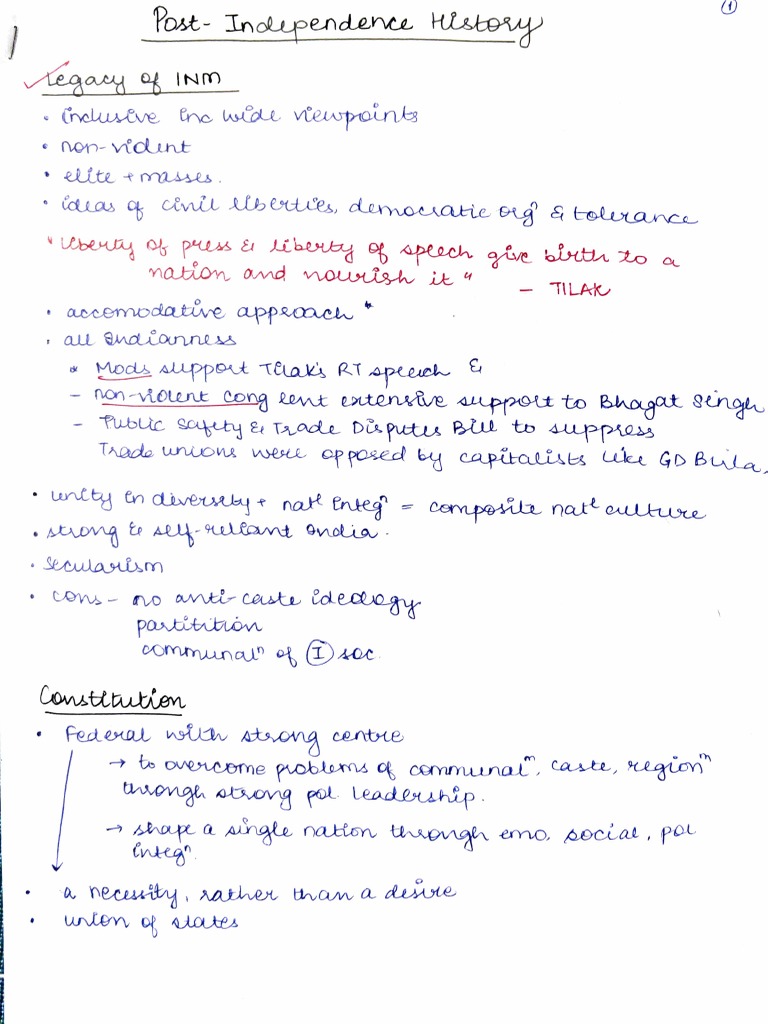 ①
Post-Independence History
Legacy of INM
• inclusive inc wide viewpoints
• non-violent
• elite + masses.
• ideas of civil liberties, democratic orgⁿ & tolerance
"liberty of press & liberty of speech give birth to a
nation and nourish it"
– TILAK
• accomodative approach *
• all Indianness
* Mods support Tilak's RT speech &
– non-violent cong lent extensive support to Bhagat Singh
– Public Safety & Trade Disputes Bill to suppress
Trade unions were opposed by capitalists like GD Birla.
• unity in diversity + natˡ integⁿ = composite natˡ culture
• strong & self-reliant India.
• secularism
• cons – no anti-caste ideology
partitition
communalⁿ of Ⓘ soc.
Constitution
• Federal with strong centre
→ to overcome problems of communalᵐ, caste, regionᵐ
through strong pol leadership.
→ shape a single nation through emo, social, pol
integⁿ.
• a necessity, rather than a desire
• union of states